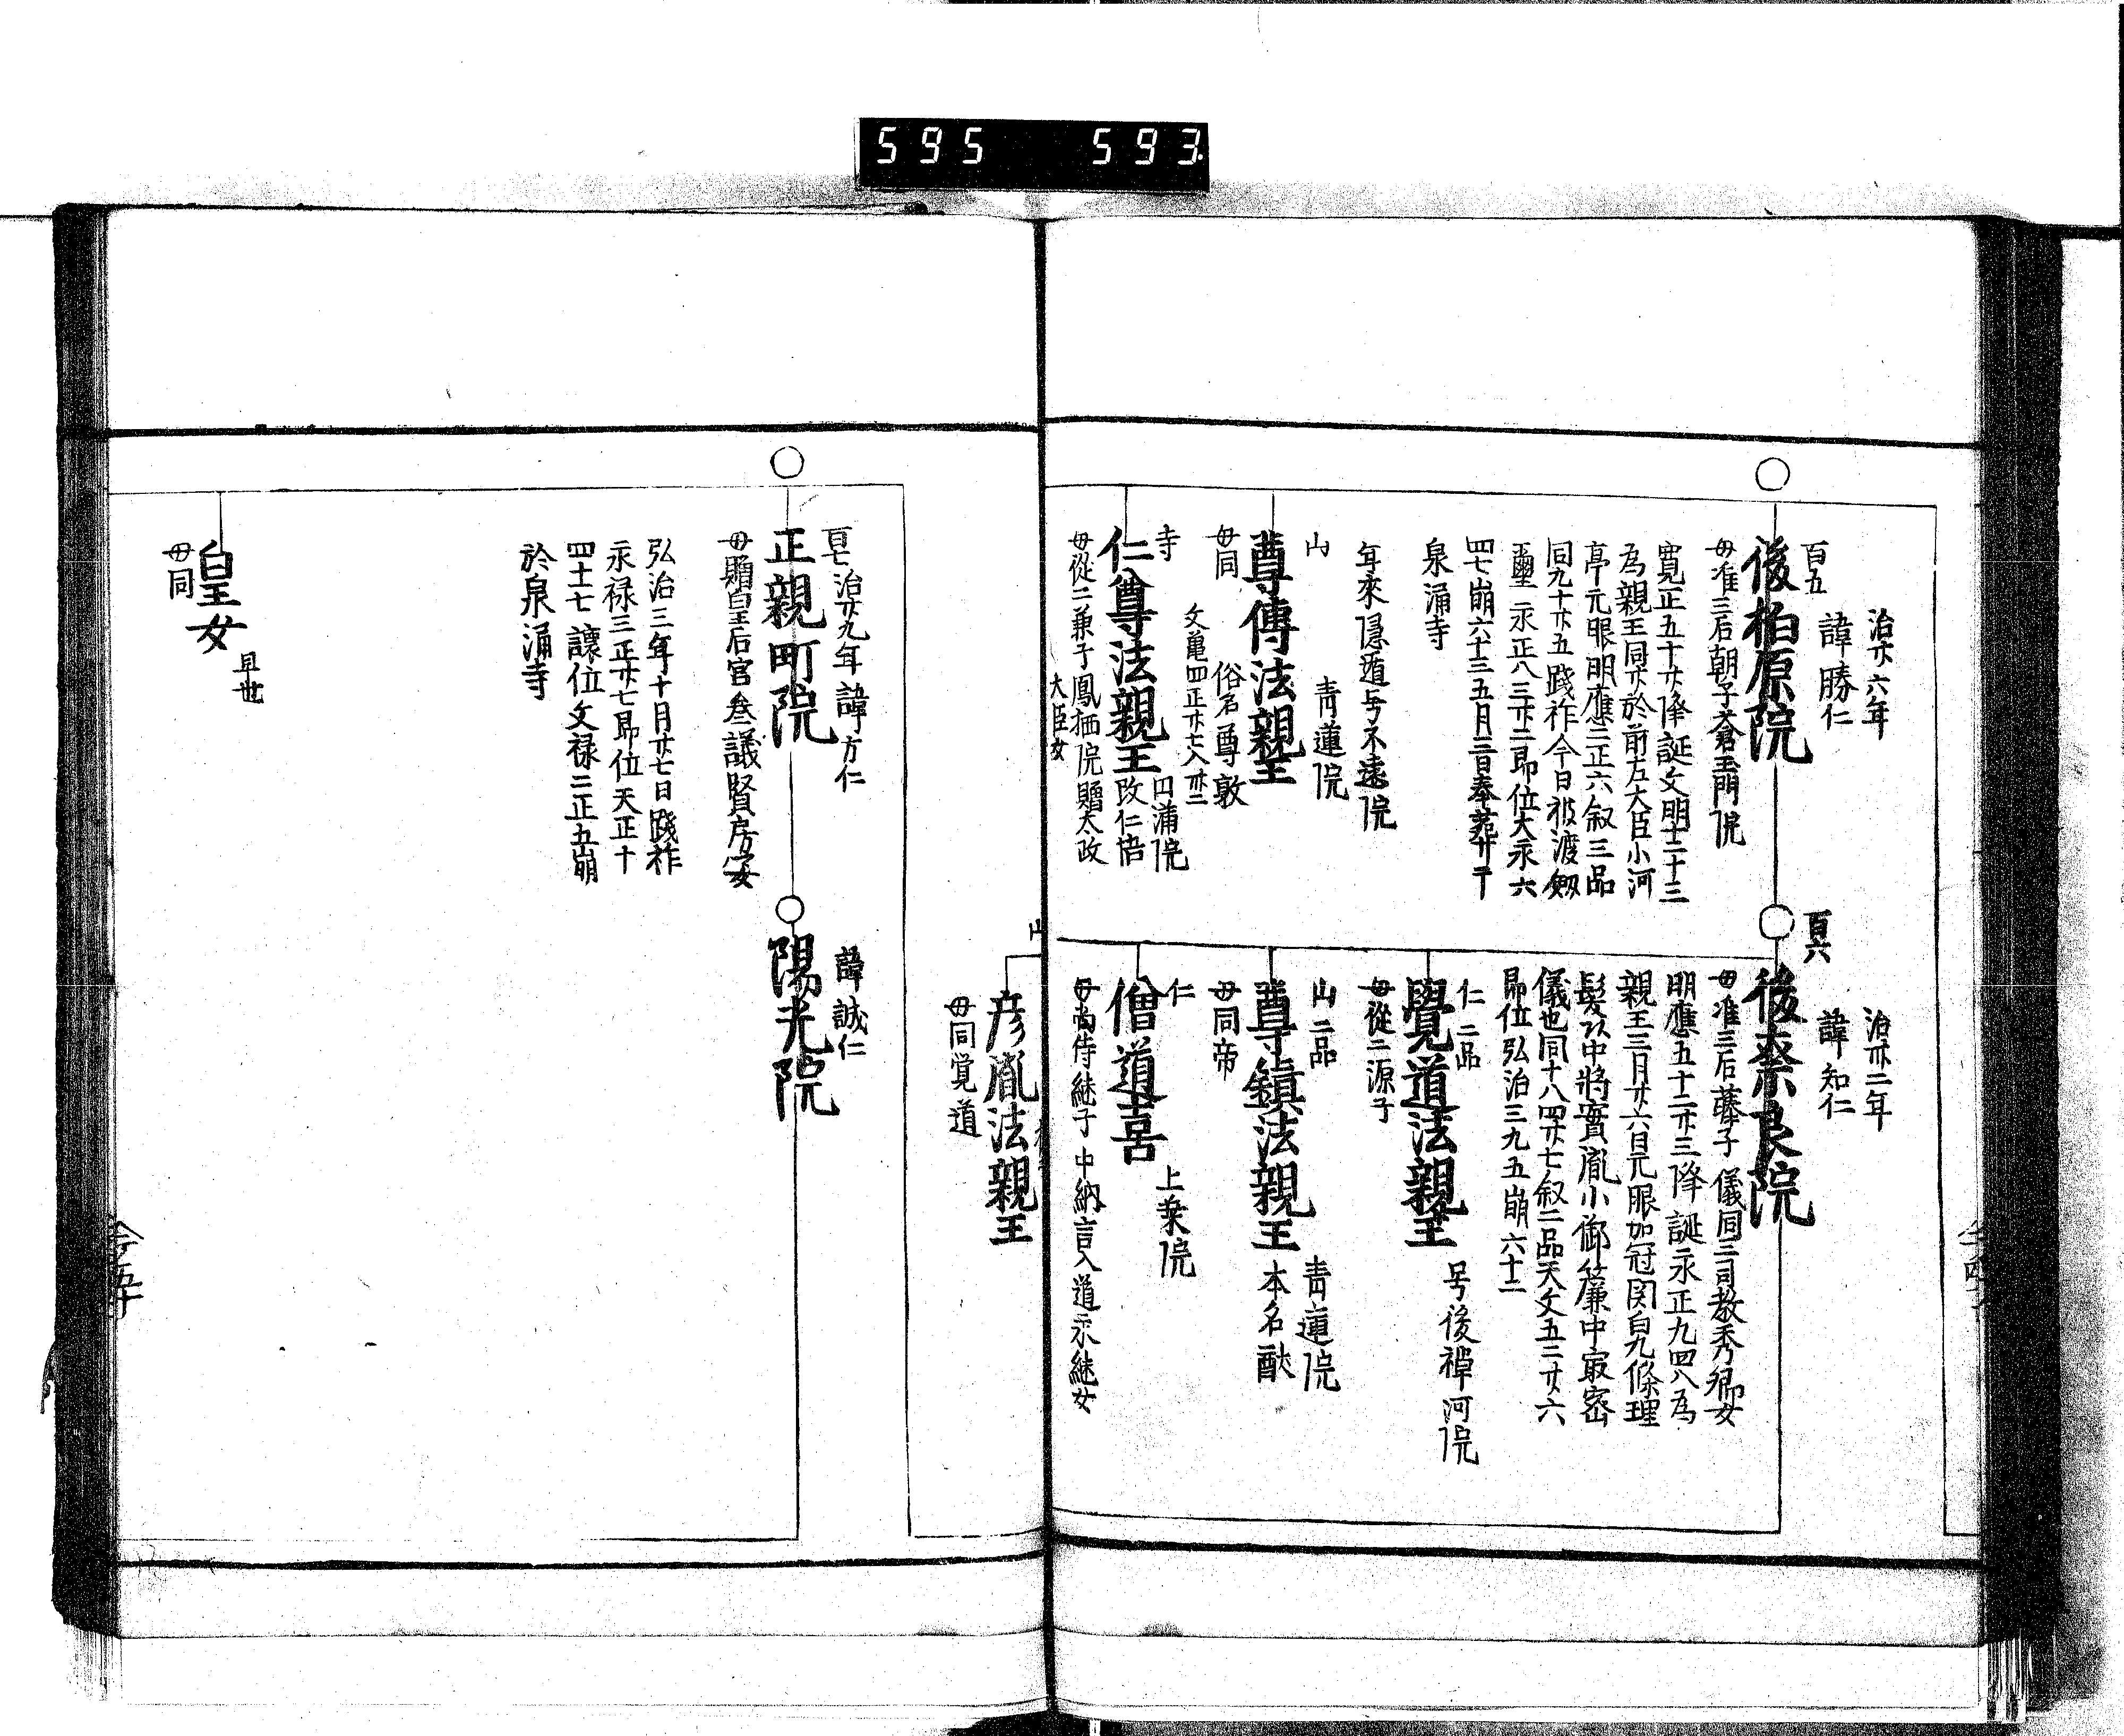 595 593
百五
治廿六年
諱勝仁
後柏原院
母准三后朝子蒼玉門院
寛正五十廿降誕文明十二十三
為親王同廿於前左大臣小河
亭元服明應三正六叙三品
同九十廿五践祚今日被渡劔
璽永正八三廿二即位大永六
四七崩六十三五月三日奉葬
泉涌寺
百六
治卅二年
諱知仁
後奈良院
母准三后藤子儀同三司教秀卿女
明應五十二廿三降誕永正九四八為
親王三月廿六日元服加冠関白九條理
髪頭中将實胤小御簾中最密
儀也同十八四廿七叙二品天文五二廿六
即位弘治三九五崩六十二
年來隠遁号不遠院
山
青蓮院
尊傳法親王
俗名尊敦
母同
文亀四正廿七入卅三
寺
円満院
仁尊法親王
改仁悟
母從二兼子鳳栖院贈太政
大臣女
仁二品
覺道法親王
号後禅河院
母從二源子
山二品
青蓮院
尊鎮法親王
本名
母同帝
仁
上乗院
僧道喜
母尚侍継子中納言入道永継女
山
彦胤法親王
母同覚道
百七
治廿九年
諱方仁
正親町院
母贈皇后宮参議賢房女
弘治三年十月廿七日践祚
永禄三正廿七即位天正十
四十七讓位文禄二正五崩
於泉涌寺
諱誠仁
陽光院
皇女
早世
母同